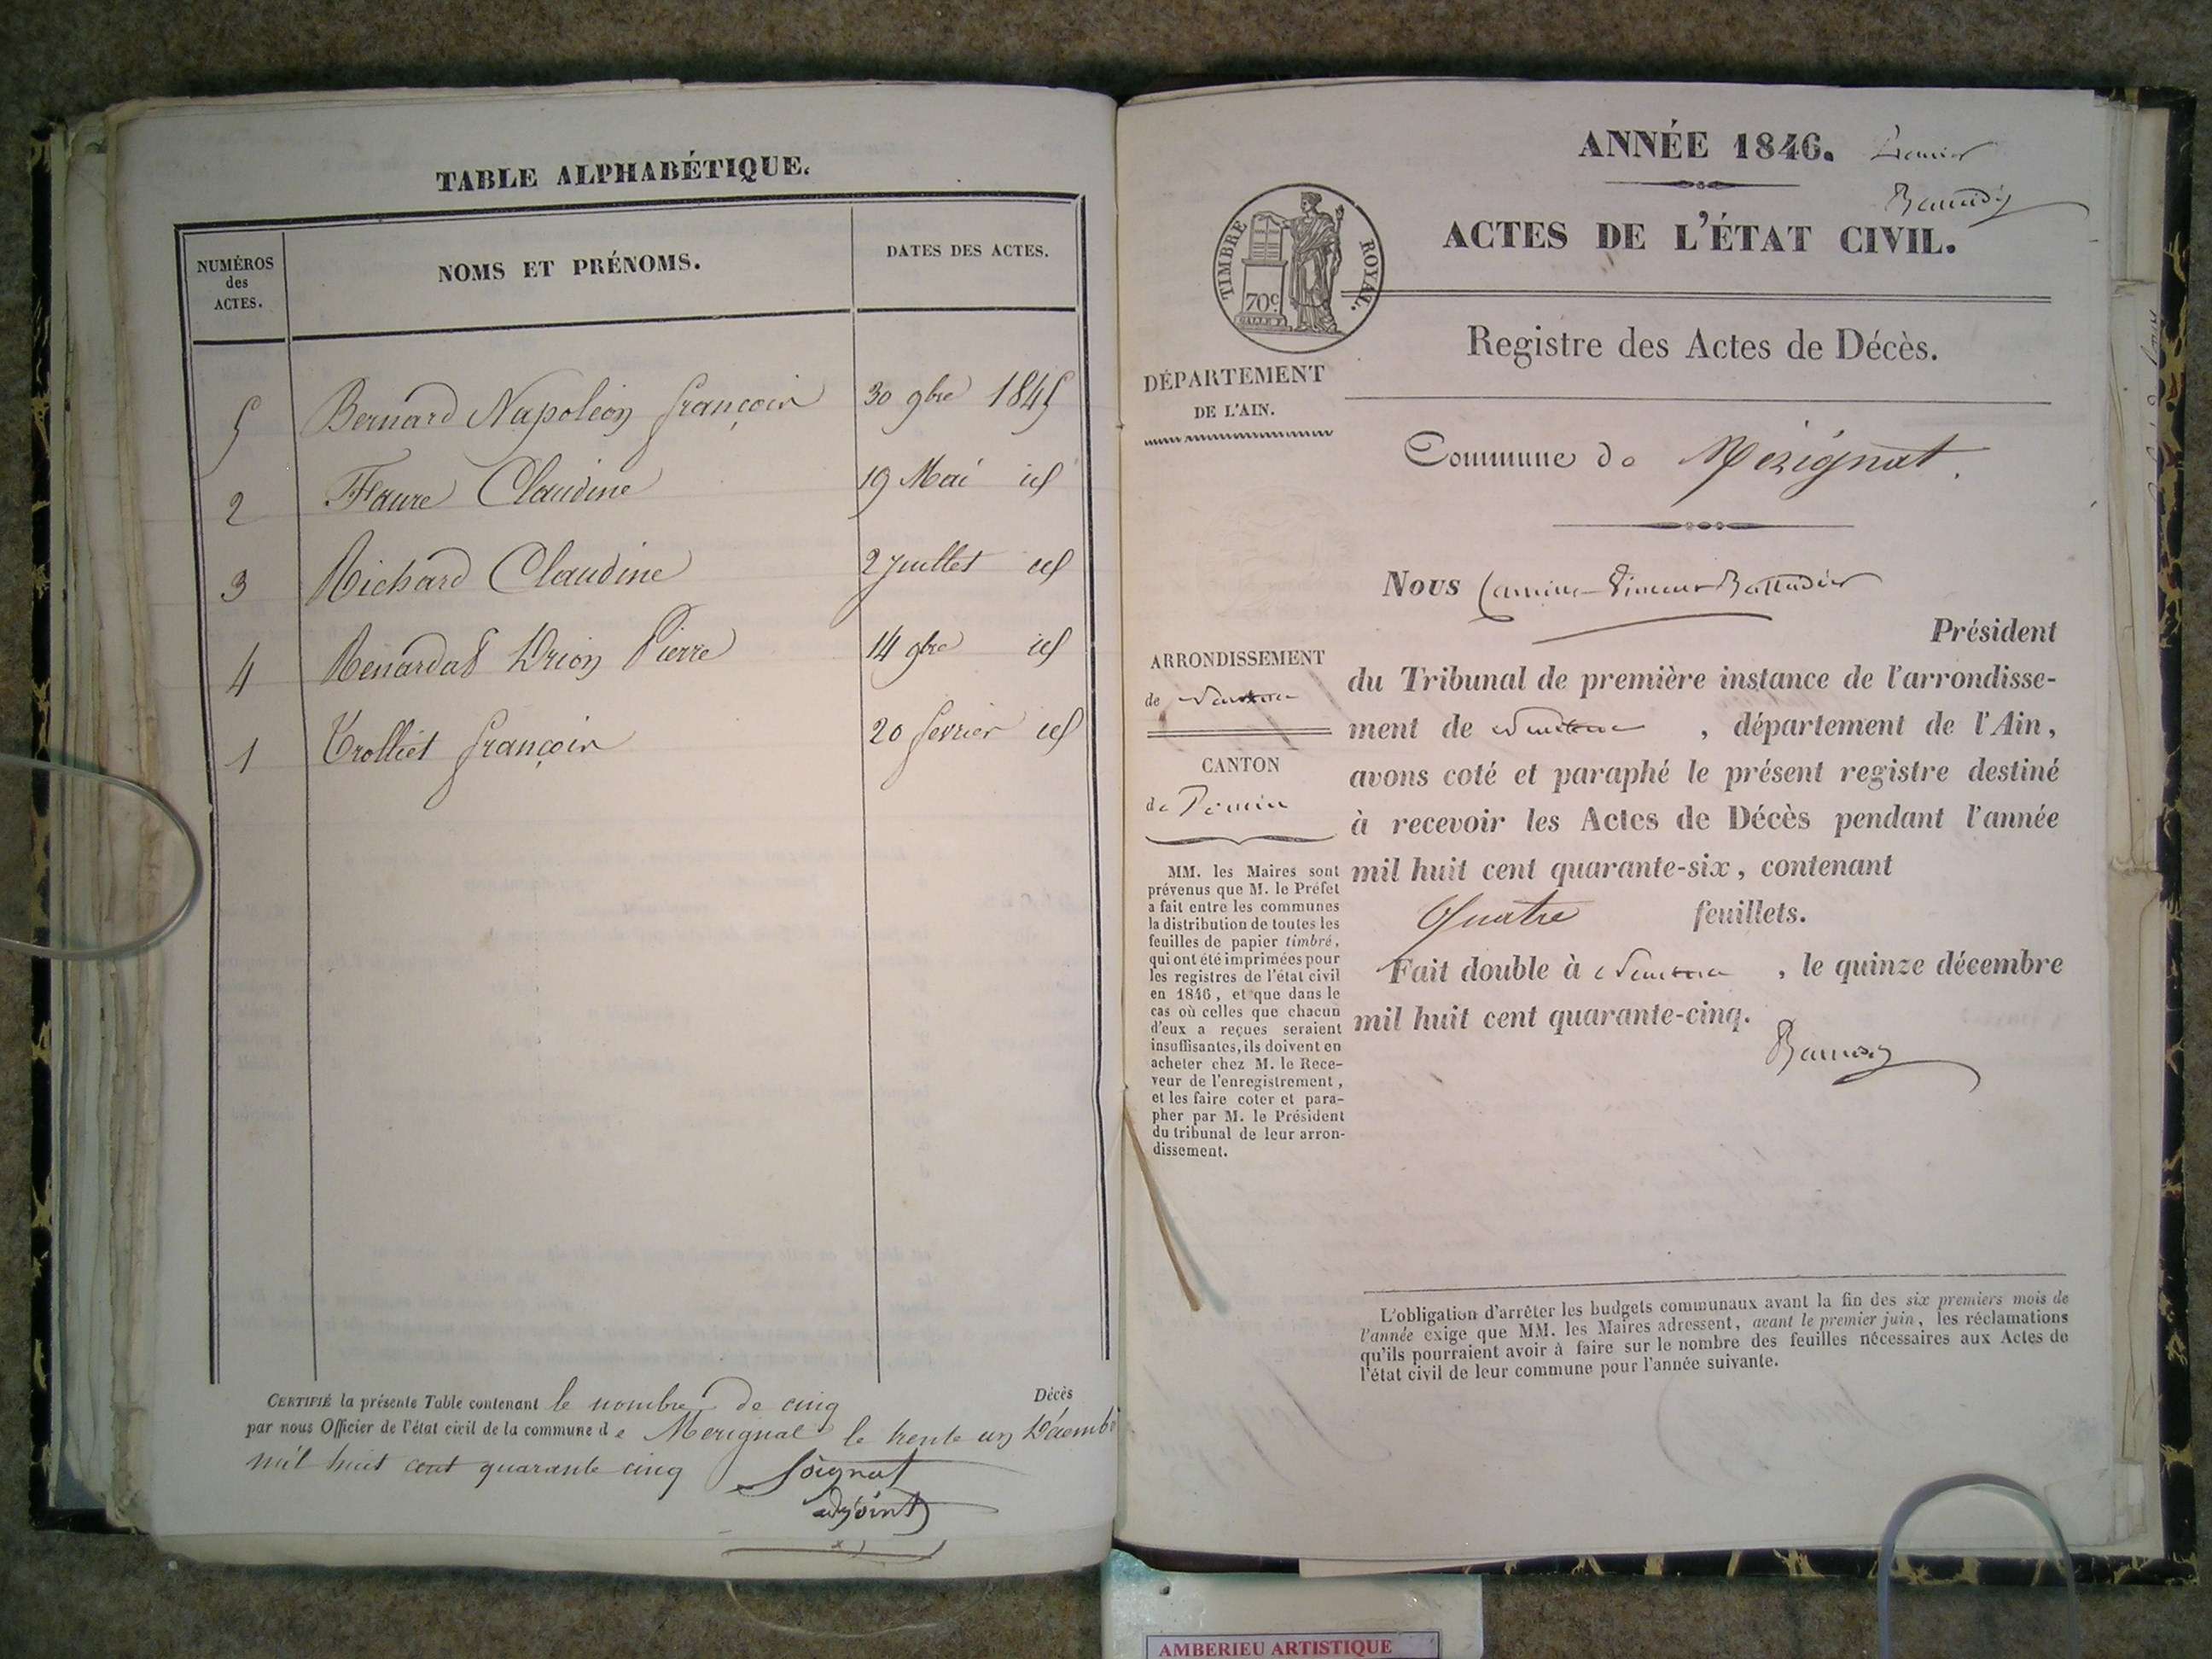 TABLE ALPHABÉTIQUE.
NUMÉROS
des
ACTES.
NOMS ET PRÉNOMS.
DATES DES ACTES.
5 Bernard Napoléon françois 30 9bre 1845
2 Faure Claudine 19 Mai id
3 Richard Claudine 2 Juillet id
4 Renardat Pierre 14 9bre id
1 Trolliet françois 20 fevrier id
CERTIFIÉ la présente Table contenant le nombre de cinq Décès
par nous Officier de l'état civil de la commune de Merignat le trente un Décembr
mil huit cent quarante cinq Soignat
adjoint
ANNÉE 1846. Premier
ACTES DE L'ÉTAT CIVIL.
TIMBRE ROYAL.
70c
Registre des Actes de Décès.
DÉPARTEMENT
DE L'AIN.
Commune de Mérignat.
Nous
Président
ARRONDISSEMENT
de Nantua
du Tribunal de première instance de l'arrondisse-
ment de Nantua, département de l'Ain,
CANTON
de Poncin
avons coté et paraphé le présent registre destiné
à recevoir les Actes de Décès pendant l'année
mil huit cent quarante-six, contenant
Quatre feuillets.
Fait double à Nantua, le quinze décembre
mil huit cent quarante-cinq.
MM. les Maires sont
prévenus que M. le Préfet
a fait entre les communes
la distribution de toutes les
feuilles de papier timbré,
qui ont été imprimées pour
les registres de l'état civil
en 1846, et que dans le
cas où celles que chacun
d'eux a reçues seraient
insuffisantes, ils doivent en
acheter chez M. le Rece-
veur de l'enregistrement,
et les faire coter et para-
pher par M. le Président
du tribunal de leur arron-
dissement.
L'obligation d'arrêter les budgets communaux avant la fin des six premiers mois de
l'année exige que MM. les Maires adressent, avant le premier juin, les réclamations
qu'ils pourraient avoir à faire sur le nombre des feuilles nécessaires aux Actes de
l'état civil de leur commune pour l'année suivante.
AMBERIEU ARTISTIQUE